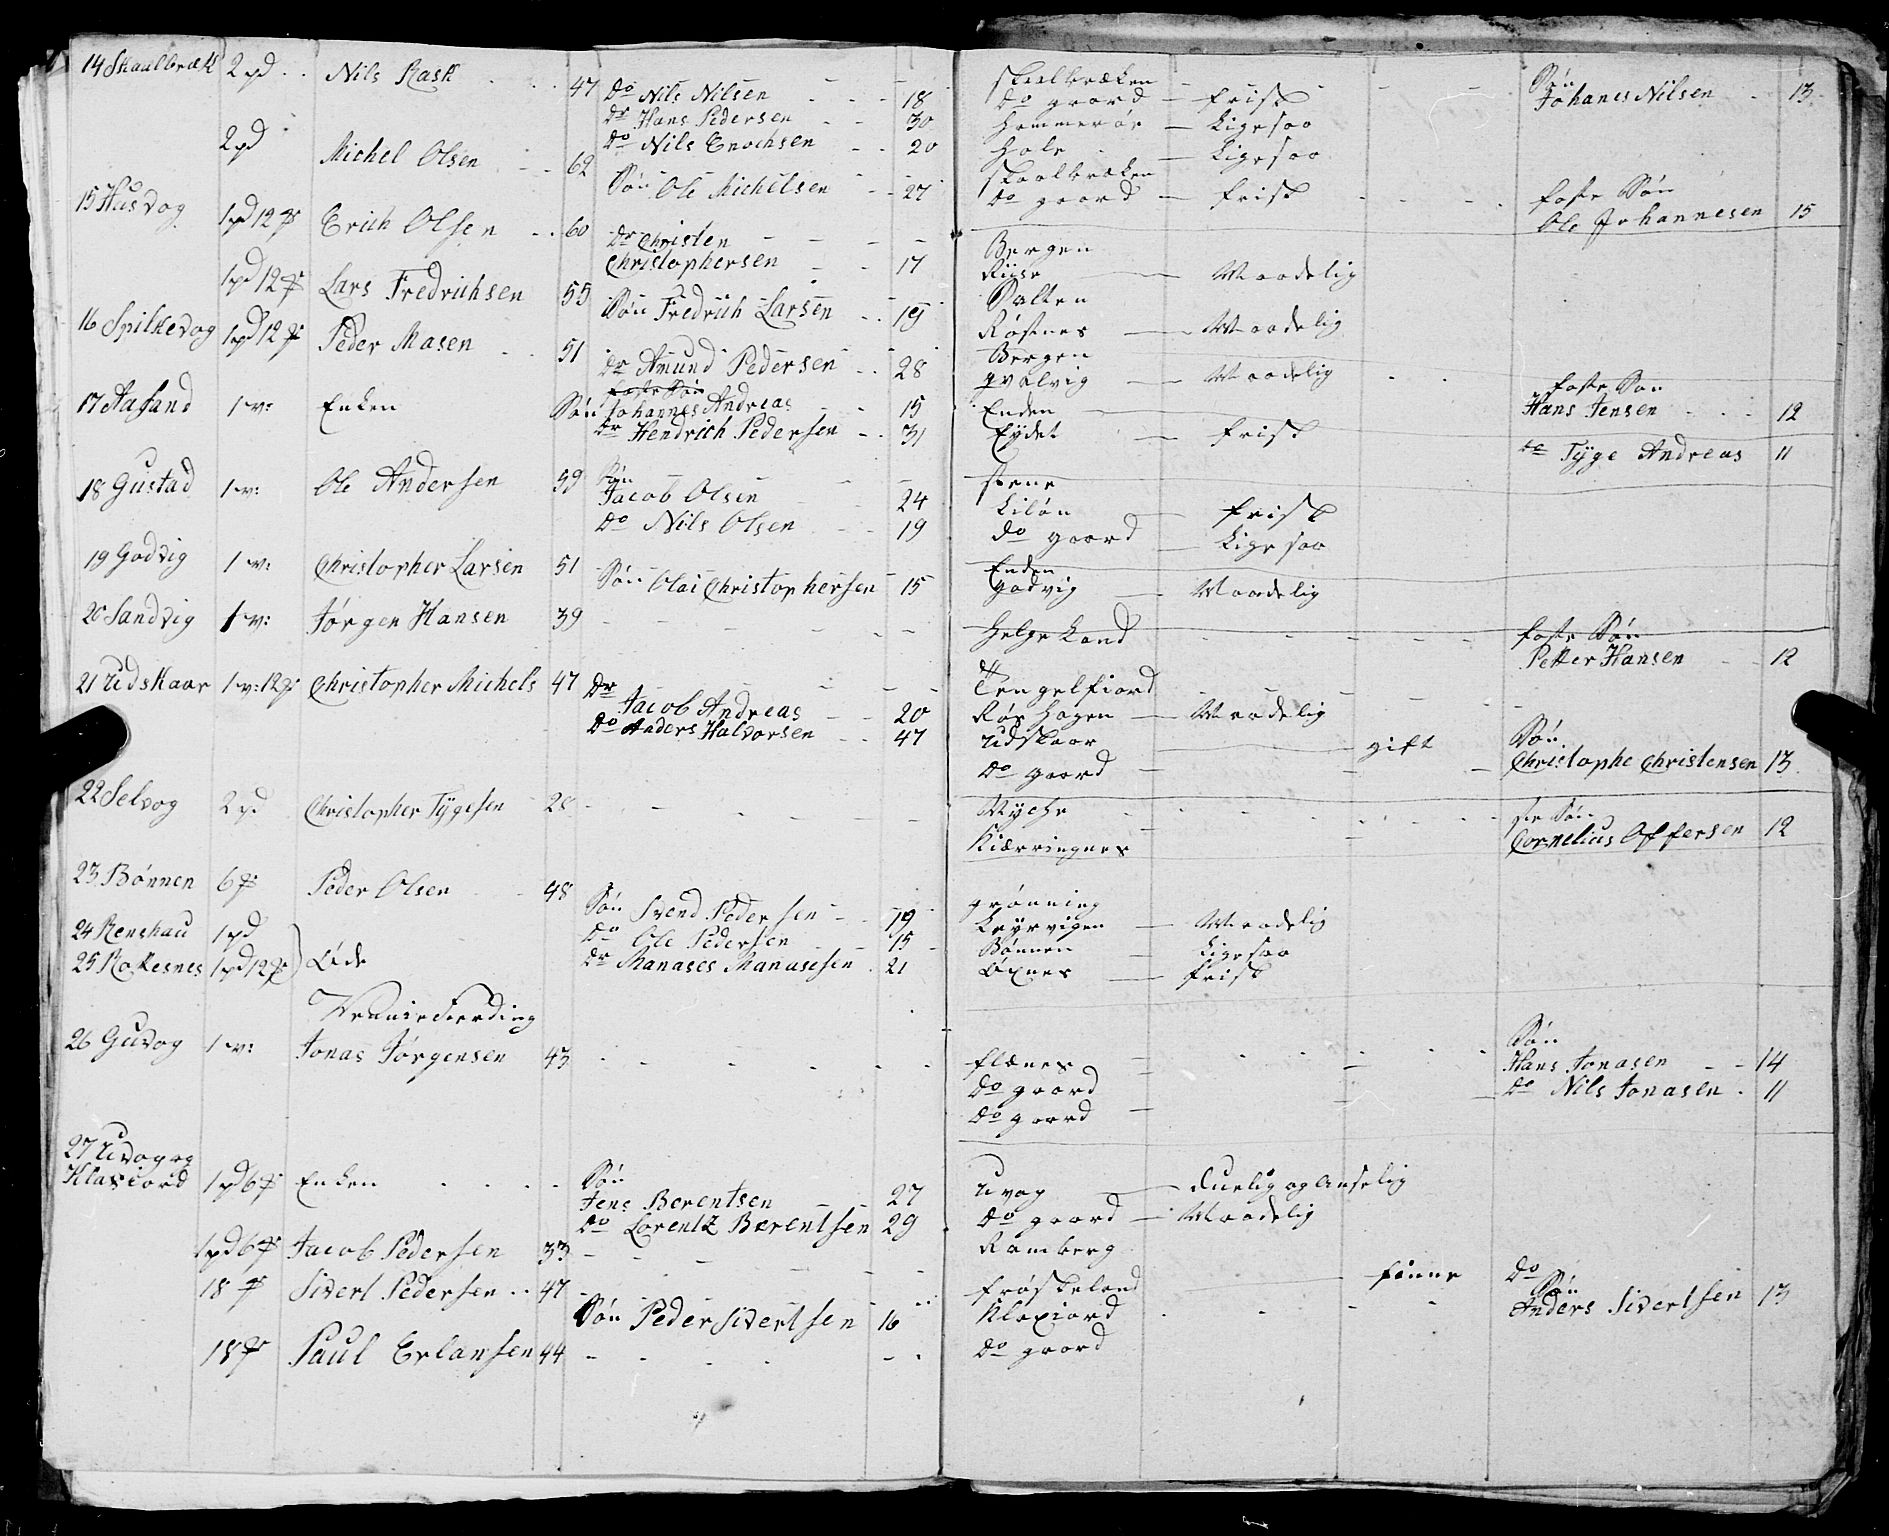 14 Skaalbræk 2 pd Nils Rask 47 skaalbræken Søn
Do Nils Nilsen 18 Do gaard frisk Johanes Nilsen 13
Dr Hans Pedersen 30 Hammerøe Ligesaa
2 pd Michel Olsen 62 Do Nils Enochsen 20 Hole Ligesaa
skaalbræken
Søn Ole Michelsen 27 Do gaard frisk foster Søn
15 Husvog 1 pd 12 Erich Olsen 60 Ole Johannesen 15
Dr Christen Bergen
Christophersen 17 Riise Maadelig
1 pd 12 Lars Fredrichsen 55 Salten
Søn Fredrich Larsen 19 Røsnes Maadelig
16 Spilkevog 1 pd 12 Peder Masen 51 Bergen
Dr Amund Pedersen 28 qvalvig Maadelig
foster Søn foster Søn
17 Aasand 1 v: Enken Søn Johannes Andreas 15 Enden Hans Jensen 12
Dr Hendrich Pedersen 31 Eydet frisk
Do Tyge Andreas 11
18 Gustad 1 v: Ole Andersen 59 Søn steene
Jacob Olsen 24 Liløn frisk
Do Nils Olsen 19 do gaard Ligesaa
19 Godvig 1 v: Christopher Larsen 51 Enden
Søn Olai Christophersen 15 Godvig Maadelig
20 Sandvig 1 v: Jørgen Hansen 39 Helgeland foster Søn
Petter Hansen 12
21 Udskaar 1 v: 12 Christopher Michels 47 Dr Tengelfiord
Jacob Andreas 20 Røshagen Maadelig
Do Anders Halvorsen 47 Udskaar gift Søn
Do gaard Christophe Christensen 13
22 Selvog 2 pd Christopher Tygesen 28 Myche Søn
Kiærringnes Cornelius Offersen 12
23 Bønnen 6 Peder Olsen 48 grønning
Søn Svend Pedersen 19 Maadelig
24 Renshau 1 pd Do Ole Pedersen 15 Bønnen Ligesaa
25 Rokesnes 1 pd 12 Øde Dr Manases Manasesen 21 Øxnes frisk
Fierding
26 Guvog 1 v: Jonas Jørgensen 43 flænes Søn
Hans Jonasen 14
Do gaard Do Nils Jonasen 11
Do gaard
27 Uvog og
Klaxiord 1 pd 6 Enken Søn
Jens Berentsen 27 Uvog Duelig og Anselig
Do Lorentz Berentsen 29 Do gaard Maadelig
1 pd 6 Jacob Pedersen 33 Ramberg
18 Sivert Pedersen 47 frøskeland finne Do
Søn
Søn Peder Sivertsen 16 Klaxiord Anders Sivertsen 13
18 Paul Erlansen 44 Do gaard